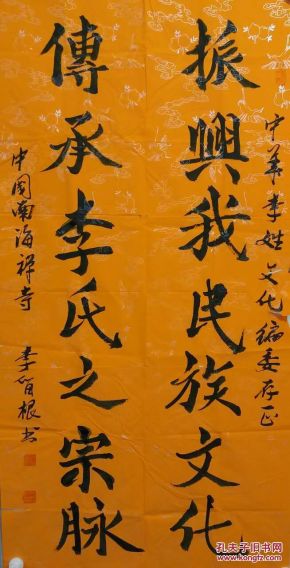 中华李姓文化编委存正
振興我民族文化
傳承李氏之宗脉
中国南海禅寺
李智根书
孔夫子旧书网